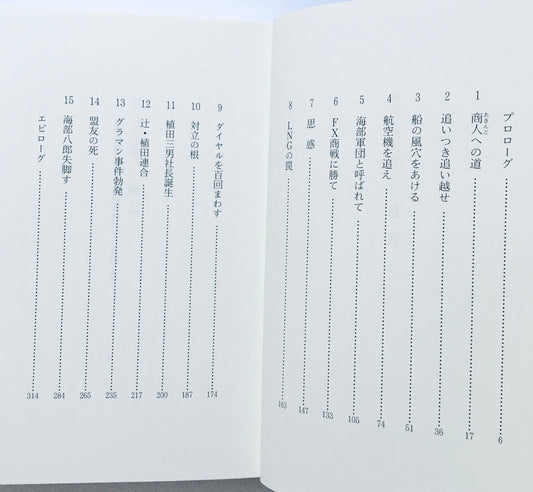 プロローグ……6
1 商人への道……17
あきんど
2 追いつき追い越せ……36
3 船の風穴をあける……51
4 航空機を追え……74
5 海部軍団と呼ばれて……105
6 FX商戦に勝て……133
7 思惑……147
8 LNGの罠……163
9 ダイヤルを百回まわす……174
10 対立の根……187
11 植田三男社長誕生……200
12 辻・植田連合……217
13 グラマン事件勃発……235
14 盟友の死……265
15 海部八郎失脚す……284
エピローグ……314